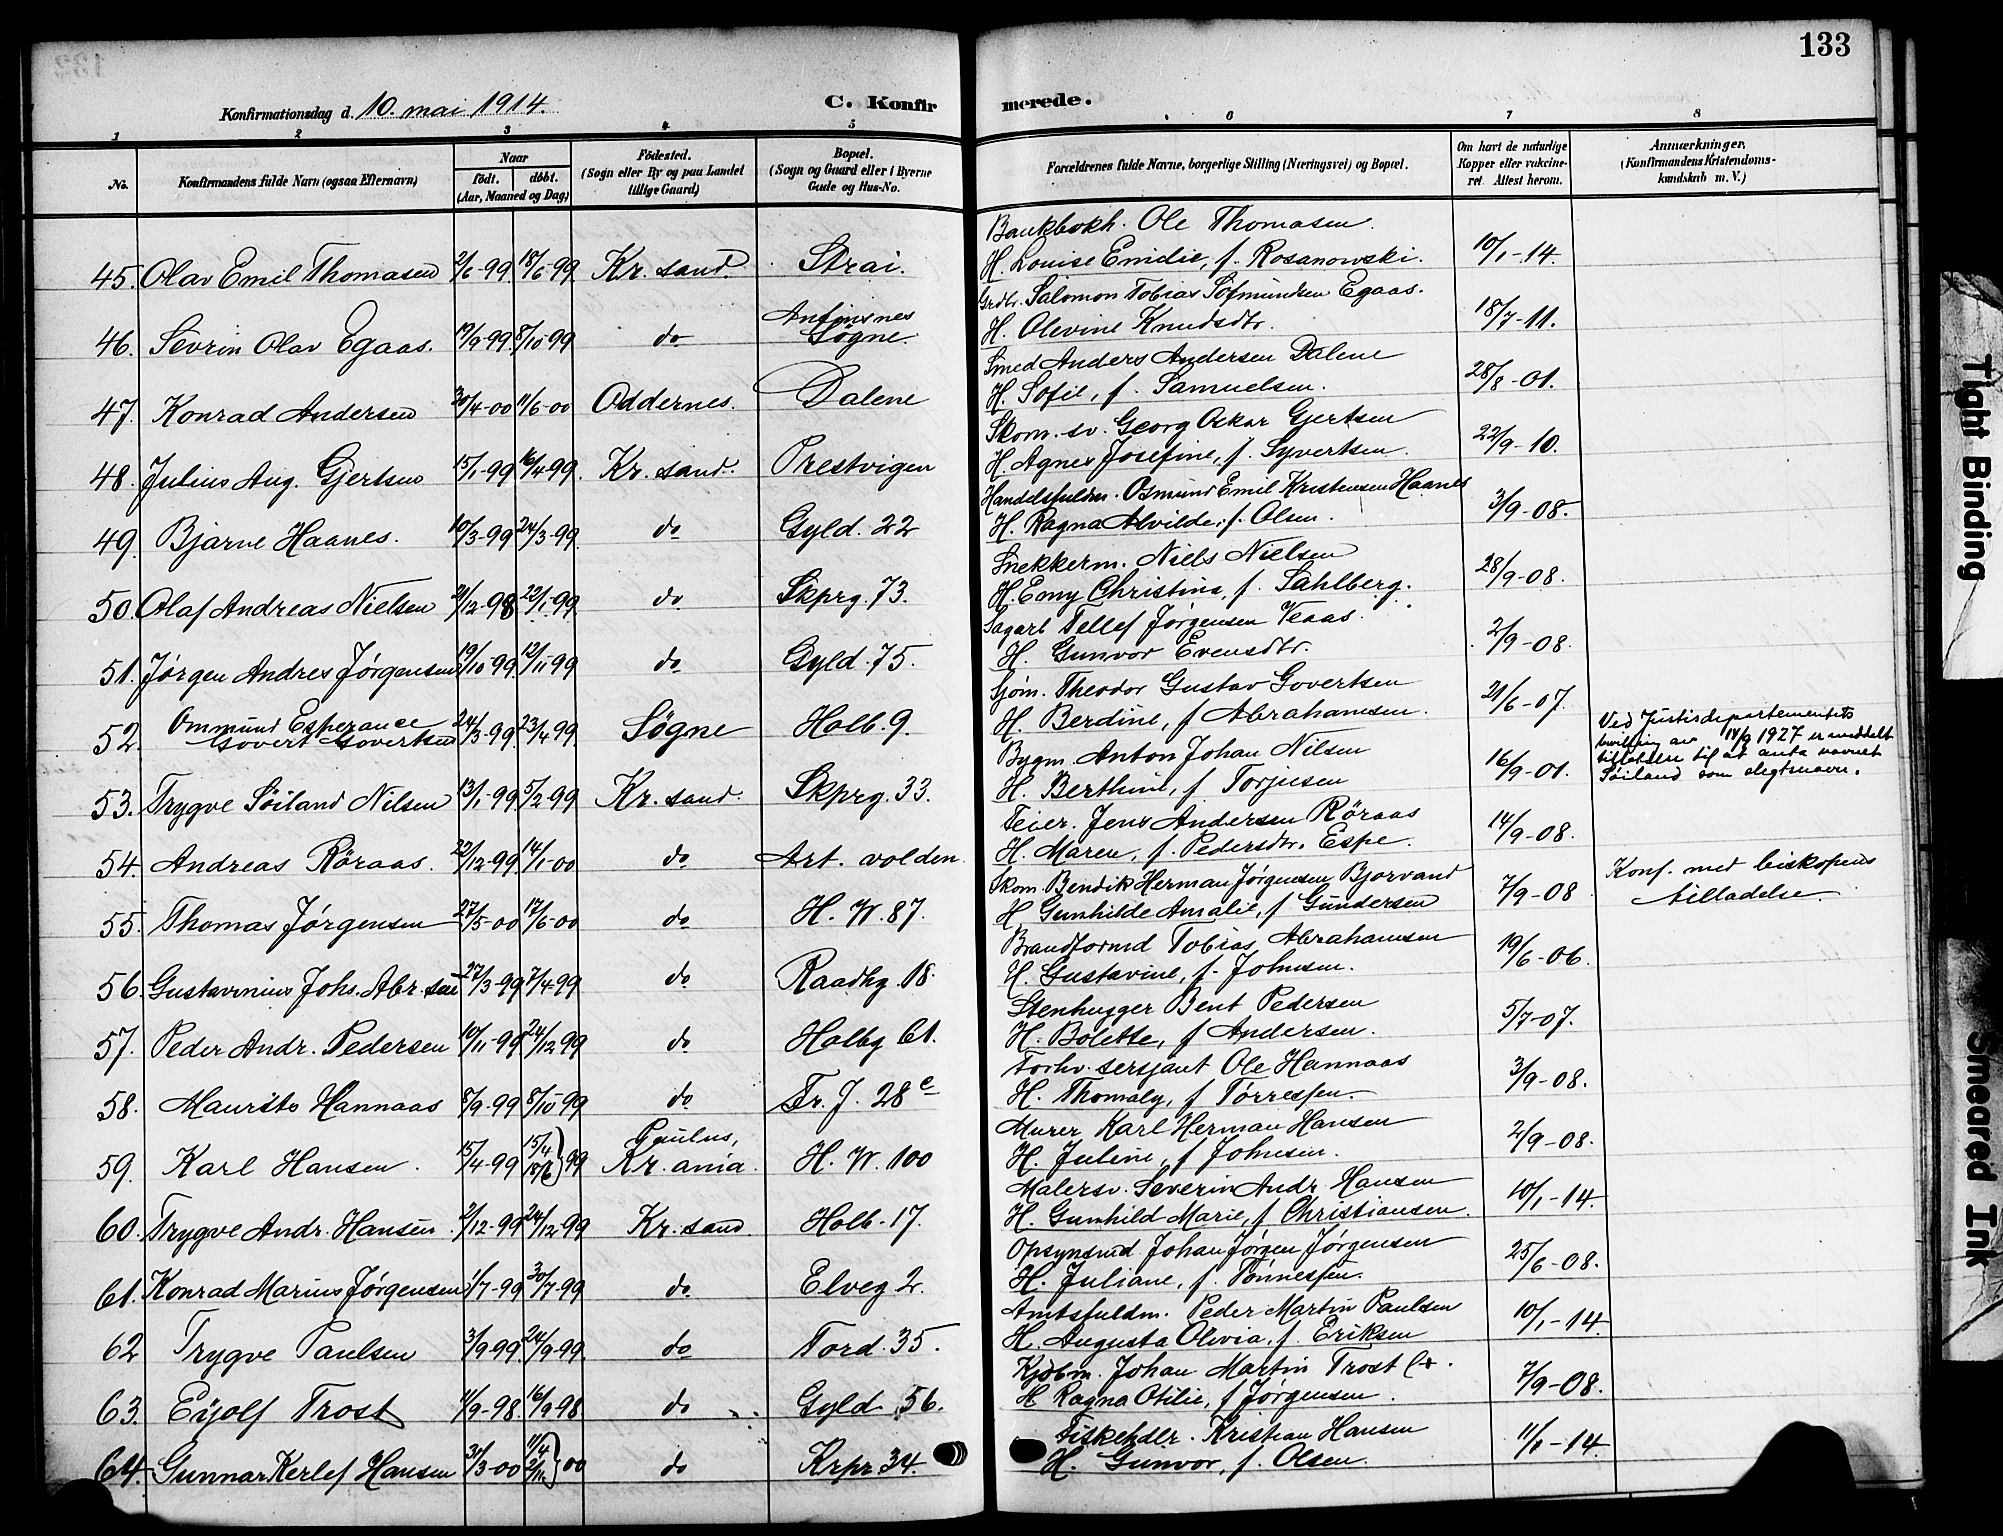 133
Konfirmationsdag d. 10. mai 1914.
C. Konfirmerede.
1 2 3 4 5 6 7 8
No.
Konfirmandens fulde Navn (ogsaa Efternavn)
Naar
født. døbt.
(Aar, Maaned og Dag)
Fødested.
(Sogn eller By og paa Landet
tillige Gaard)
Bopæl.
(Sogn og Gaard eller i Byerne
Gade og Hus-No.
Forældrenes fulde Navne, borgerlige Stilling (Næringsvei) og Bopæl.
Om havt de naturlige
Kopper eller vakcine-
ret. Attest herom.
Anmærkninger,
(Konfirmandens Kristendoms-
kundskab m. V.)
Bankbokh. Ole Thomasen.
45. Olav Emil Thomasen 2/6-99 18/6-99 Kr. sand Strai. H. Louise Emilie, f. Rosanowski. 10/1-14.
Grdbr. Salomon Tobias Sofmundsen Egaas.
46. Sevrin Olav Egaas. 19/9-99 8/10-99 do Søgne. H. Olevine Knudsdtr. 18/7-11.
Smed Anders Andersen Dalene
47. Konrad Andersen 30/4-00 11/6-00 Oddernes. Dalene H. Sofie, f. Samuelsen. 28/8-01.
Skom. sv. Georg Oskar Gjertsen
48. Julius Aug. Gjertsen 15/1-99 16/4-99. Kr. sand. Prestvigen H. Agnes Josefine, f. Syvertsen. 22/9-10.
Handelsfuldm. Osmund Emil Kristensen Haanes
49. Bjarne Haanes. 10/3-99 24/3-99 do Gyld. 22 H. Ragna Alvilde, f. Olsen. 3/9-08.
Snekkerm. Niels Nielsen
50. Olaf Andreas Nielsen 21/12-98 22/1-99 do Skprg. 73. H. Emy Christine, f. Sahlberg. 28/9-08.
Sagarb Tellef Jørgensen Veaas.
51. Jørgen Andres Jørgensen 19/10-99 12/11-99 do Gyld. 75. H. Gunvor Evensdtr. 2/9-08.
Sjøm. Theodor Gustav Govertsen
52. Ommund Esperance
Govert Govertsen 24/3-99 23/4-99 Søgne Holb. 9. H. Berdine, f Abrahamsen. 21/6-07.
Bygm. Anton Johan Nilsen
53. Trygve Søiland Nilsen 13/1-99 5/2-99 Kr. sand. Skprg. 33. H. Berthine, f Torjusen 16/9-01.
Ved Justisdepartementets
bevilling av 14/9 1927 er meddelt
tillatelse til at anta navnet
Søiland som slegtsnavn.
Feier. Jens Andersen Røraas
54. Andreas Røraas. 22/12-99 14/1-00 do Art. volden H. Maren, f. Pedersdtr. Espe. 14/9-08.
Skom. Bendik Herman Jørgensen Bjorvand
55. Thomas Jørgensen 27/5-00 17/6-00 do H. W. 87. H. Gunhilde Amalie, f Gundersen 7/9-08
Konf. med biskopens
tilladelse.
Brandformd Tobias Abrahamsen
56. Gustavinius Johs. Abr. sen 27/3-99 7/4-99 do Raadhg. 18. H. Gustavine, f. Johnsen. 19/6-06.
Stenhugger Bent Pedersen
57. Peder Andr. Pedersen 10/11-99 24/12-99 do Holbg 61. H. Bolette, f Andersen. 5/7-07.
Forhv. sersjant Ole Hannaas
58. Maurits Hannaas 8/9-99 8/10-99 do Fr. J. 28 c H. Thomaly, f Tørresen. 3/9-08.
Murer Karl Herman Hansen
59. Karl Hansen. 15/4-99 15/4 18/6 } 99 Paulus, Kr. ania. H. W. 100 H. Juline, f Johnsen. 2/9-08.
Malersv. Severin Andr. Hansen
60. Trygve Andr. Hansen 2/12-99 24/12-99 Kr. sand. Holb. 17. H. Gunhild Marie, f Christiansen. 10/1-14.
Opsynsmd Johan Jørgen Jørgensen
61. Konrad Marius Jørgensen 1/7-99 30/7-99 do Elveg 2. H. Juliane, f. Tønnessen. 25/6-08.
Amtsfuldm. Peder Martin Paulsen
62 Trygve Paulsen 3/9-99. 24/9-99. do Tord. 35. H. Augusta Olivia, f. Eriksen 10/1-14.
Kjøbm. Johan Martin Trost
63. Eyolf Trost 11/9-98. 16/9-98. do Gyld. 56. H Ragna Otilie, f Jørgensen. 7/9-08.
Fiskehdlr. Kristian Hansen
64. Gunnar Kerlef Hansen 31/3-00 11/4 2/11 } 00 do Krpr 34. H. Gunvor, f. Olsen. 11/1-14.
Tight Binding
Smeared Ink